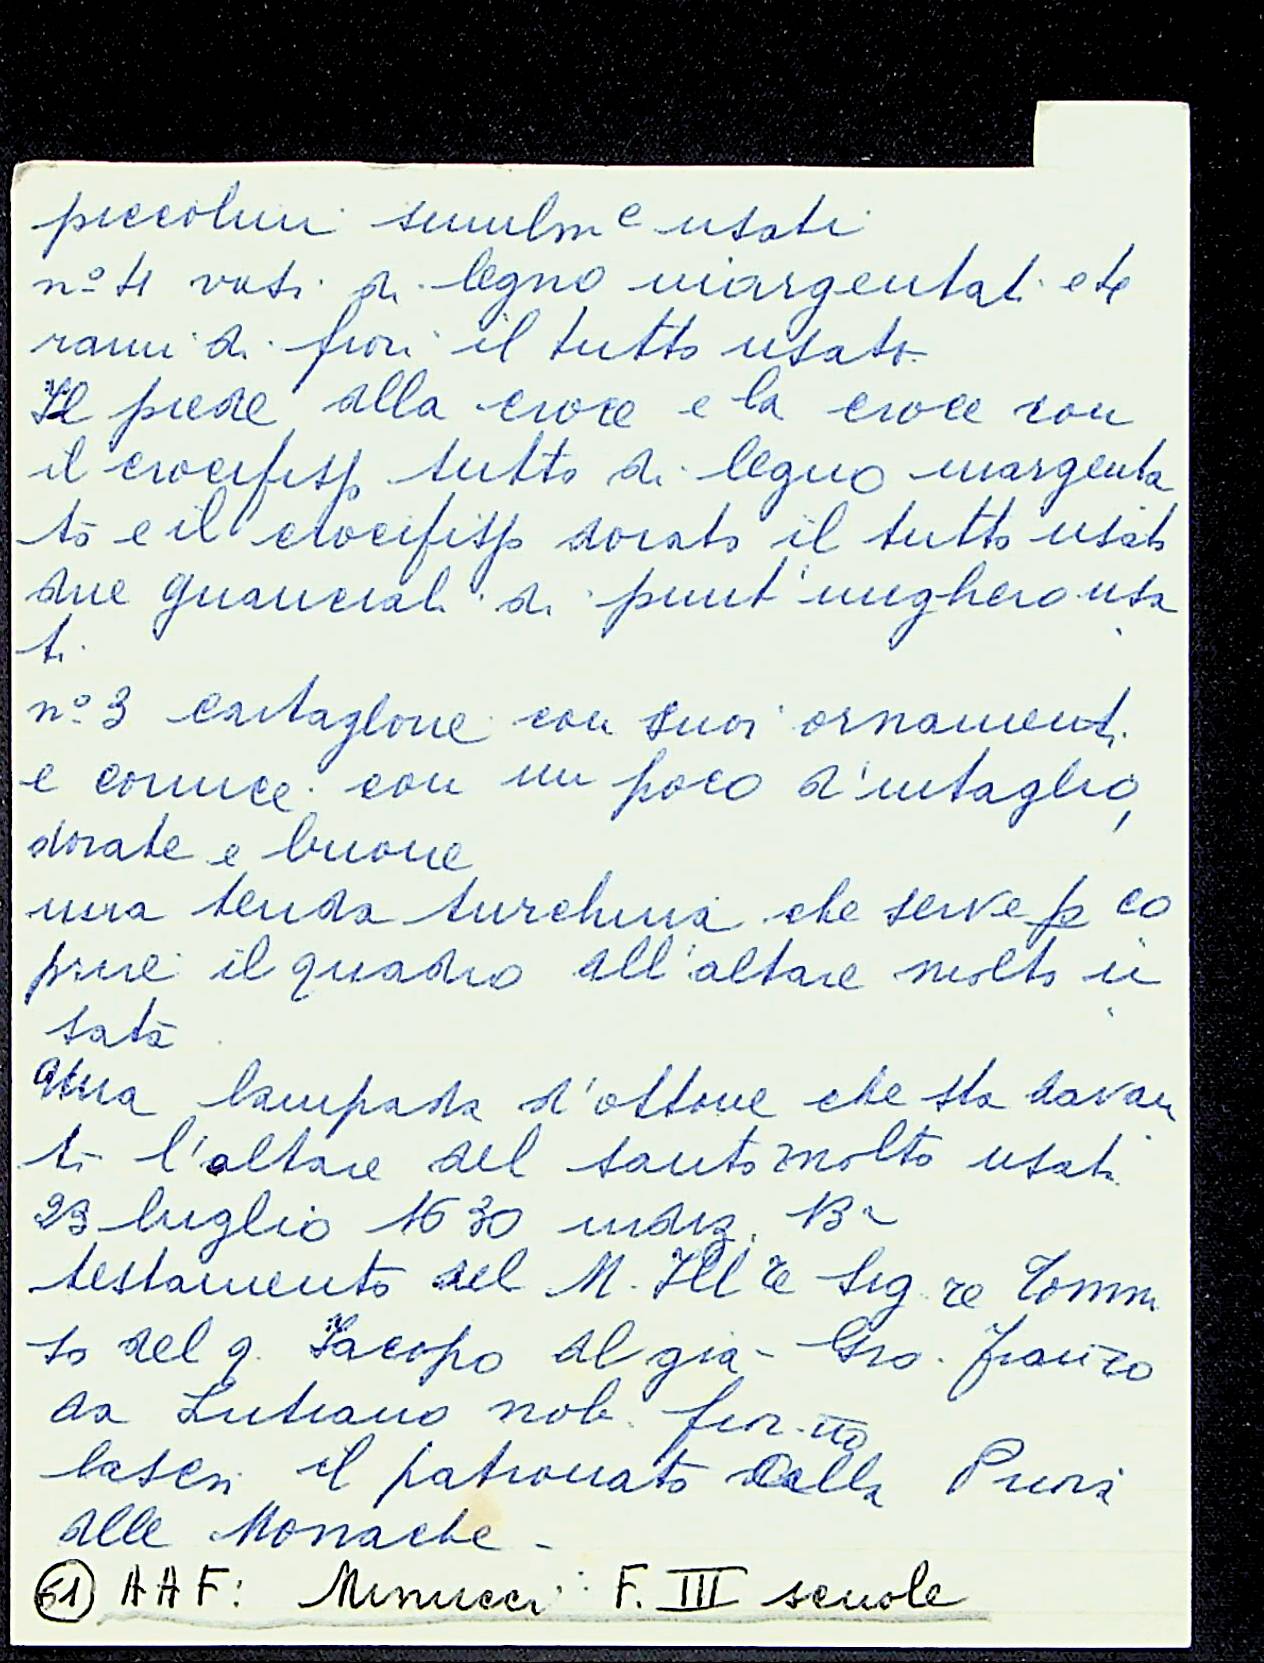 piccolini similm e usati
nº 4 vasi di legno inargentati et e
rami di fiori il tutto usato
Il piede alla croce e la croce con
il crocifisso tutto di legno inargenta
to e il crocifisso dorato il tutto usato
due guanciali di punt'unghero usa
ti
nº 3 cartaglorie con suoi ornamenti
e cornice con un poco d'intaglio,
dorate e buone
una tenda turchina che serve p co
prire il quadro all'altare molto u
sata
una lampada d'ottone che sta davan
ti l'altare del santo molto usati
23 luglio 1630 indiz. 13a
testamento del M. Ill re Sig. re Tomm
so del q. Iacopo al già Gio. Franco
da Lutiano nob. fior.no
lasciò il patronato della Prioria
alle Monache -
61 AAF: Minucci F. III scuole